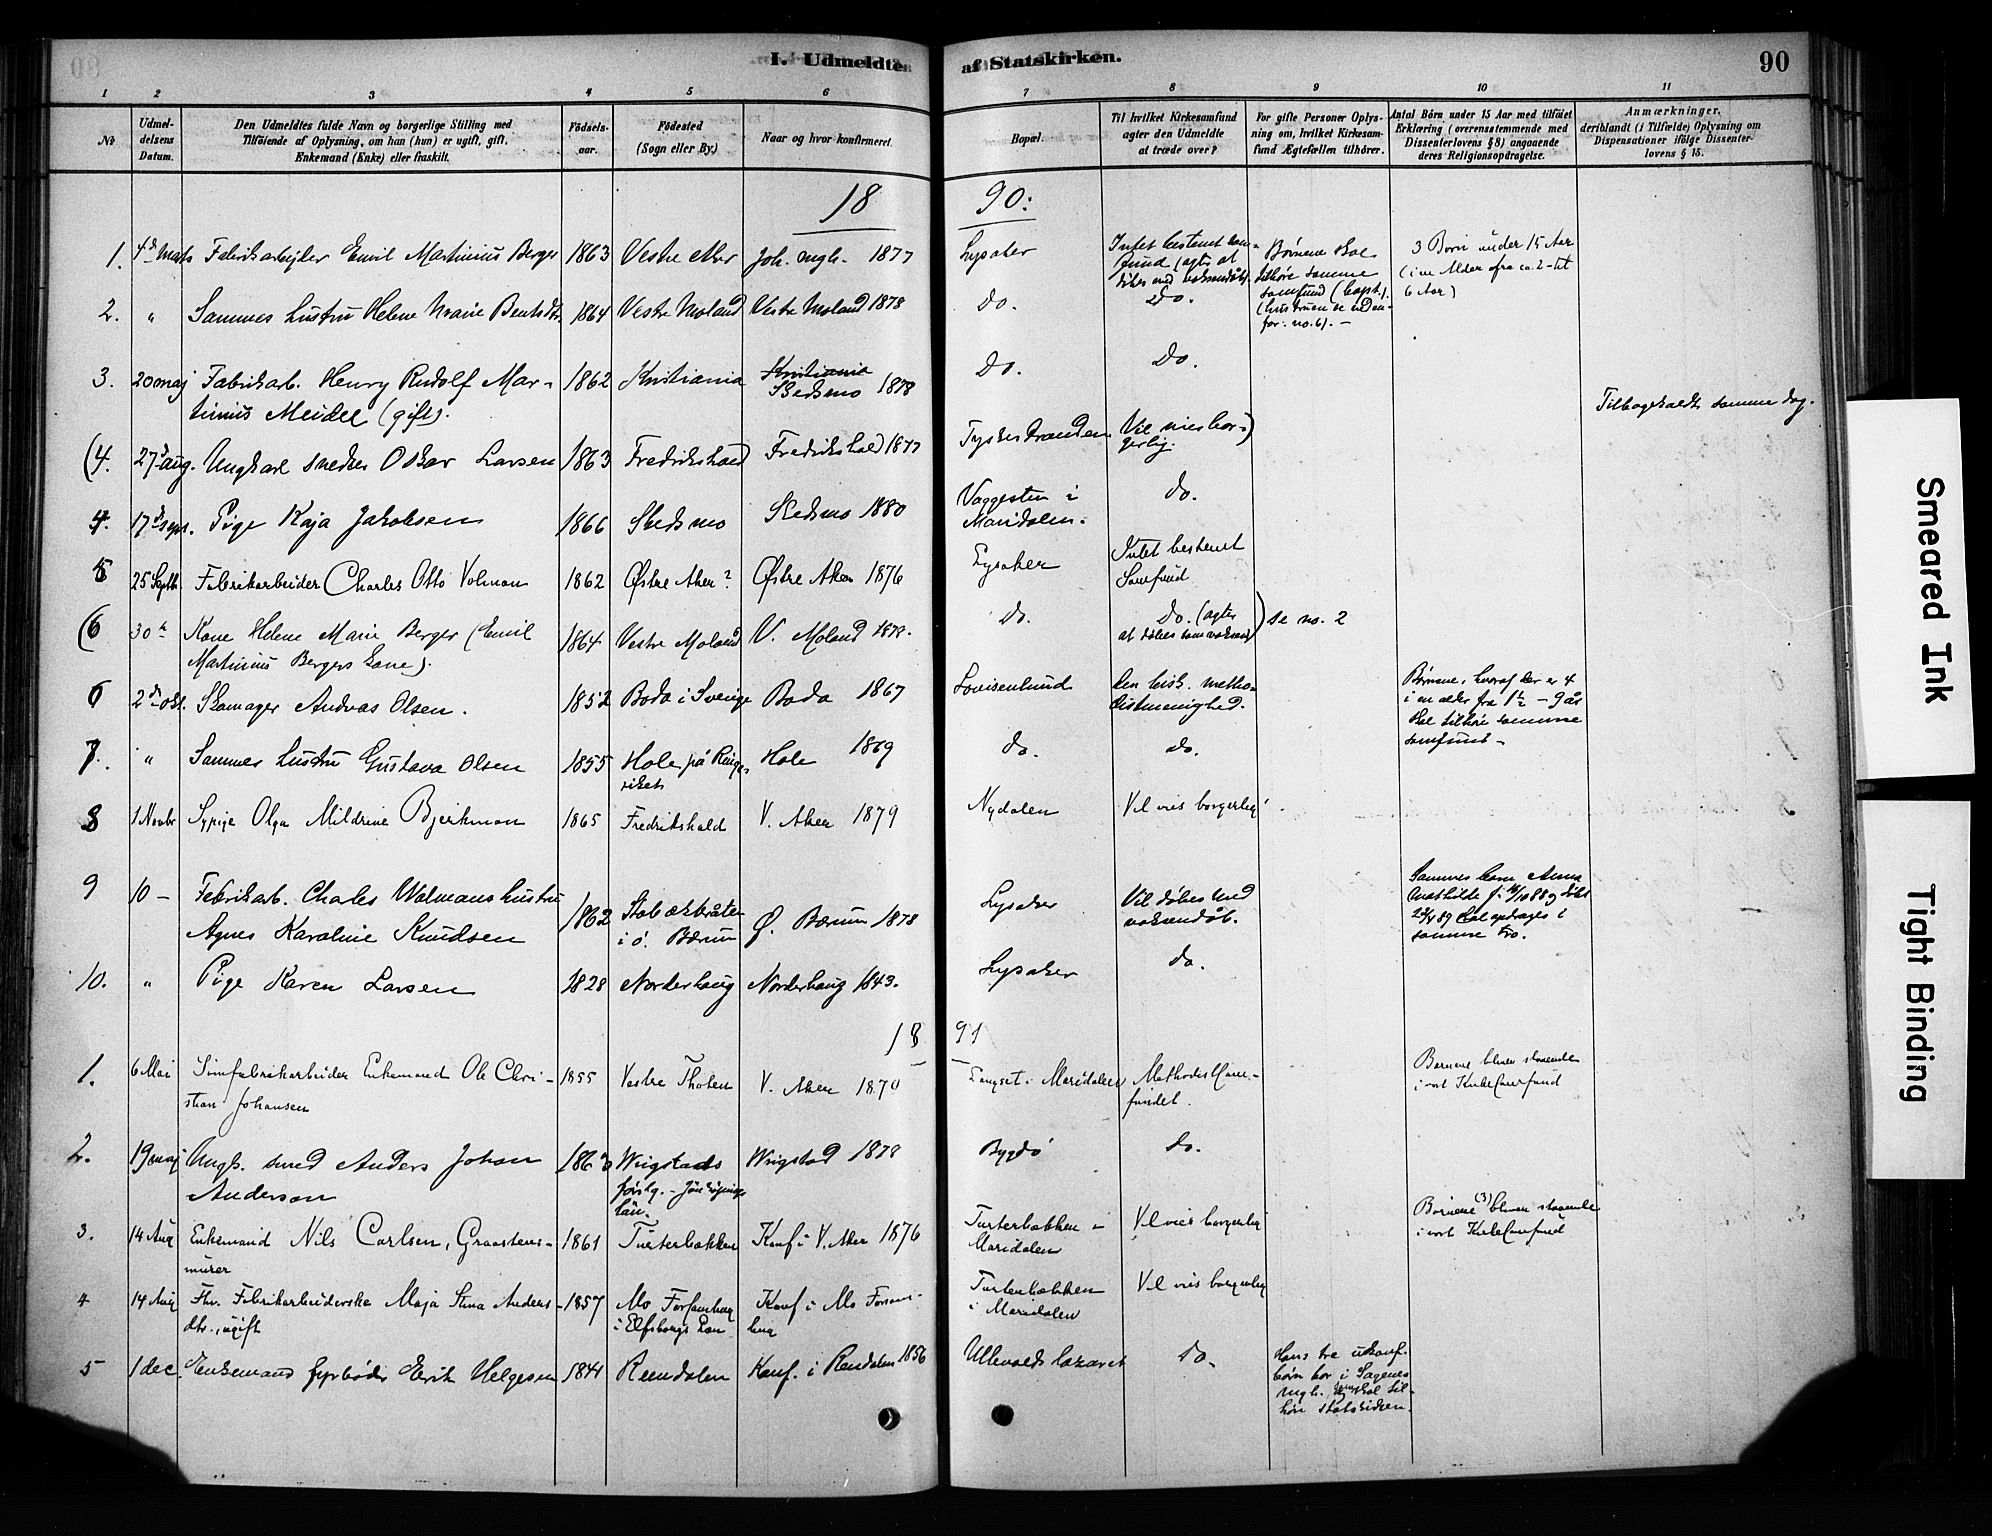 I. Udmeldte af Statskirken.
90
1 2 3 4 5 6 7 8 9 10 11
No
Udmel-
delsens
Datum.
Den Udmeldtes fulde Navn og borgerlige Stilling med
Tilføiende af Oplysning, om han (hun) er ugift, gift,
Enkemand (Enke) eller fraskilt.
Fødsels-
aar.
Fødested
(Sogn eller By.)
Naar og hvor konfirmeret.
Bopæl.
Til hvilket Kirkesamfund
agter den Udmeldte
at træde over?
For gifte Personer Oplys-
ning om, hvilket Kirkesam-
fund Ægtefællen tilhører.
Antal Børn under 15 Aar med tilføiet
Erklæring (overensstemmende med
Dissenterlovens § 8) angaaende
deres Religionsopdragelse.
Anmærkninger,
deriblandt (i Tilfælde) Oplysning om
Dispensationer ifølge Dissenter-
lovens § 15.
18 90:
1. 4de Marts Fabrikarbejder Emil Martinius Berger 1863 Vestre Aker Joh. mgh. 1877 Lysaker
Intet bestemt sam-
fund (agter at
døbes med voksendåb).
Børnene skal
tilhøre samme
samfund (bapt.).
(hustruen se neden-
for: no. 6). –
3 Børn under 15 Aar
(i en Alder fra ca. 2 til
6 Aar)
2. " Sammes hustru Helene Marie Bentsdtr. 1864 Vestre Moland Vestre Moland 1878 do. do.
3. 20 maj Fabrikarb. Henry Rudolf Mar-
tinius Meidel (gift). 1862 Kristiania Kristiania
Skedsmo 1878 do. do.
Tilbagekaldt samme dag.
(4. 27de aug. Ungkarl snedker Oskar Larsen 1863 Fredrikshald Fredrikshald 1877 Tyskestranden Vil vies bor-
gerlig.)
4. 17de sept. Pige Kaja Jakobsen 1866 Skedsmo Skedsmo 1880 Vaggesten i
Maridalen. do.
5 25 Septb Fabrikarbeider Charles Otto Volman 1862 Østre Aker? Østre Aker 1876 Lysaker Intet bestemt
Samfund
(6 30te Kone Helene Marie Berger (Emil
Martinius Bergers kone). 1864 Vestre Moland V. Moland 1878. do. do. (agter
at døbes som voksen) ) se no. 2
6 2den okt. Skomager Andreas Olsen. 1852 Boda i Sverige Boda 1867 Lovisenlund Den bisk. metho-
distmenighed.
Børnene, hvoraf der er 4
i en alder fra 1½ – 9 år
skal tilhøre samme
samfund –
7. " Sammes hustru Gustava Olsen 1855 Hole på Ringe-
riket Hole 1869 do. do.
8 1 Novbr Sypige Olga Mildrine Bjerkman 1865 Fredrikshald V. Aker 1879 Nydalen Vil vies borgerlig.
9 10 – Fabrikarb. Charles Walmans hustru
Agnes Karoline Knudsen 1862 Stabækbråten
i ø. Bærum Ø. Bærum 1878 Lysaker Vil døbes med
voksendåb.
Sammes barn Anna
Mathilde
samme tro.
10. " Pige Karen Larsen 1828 Norderhaug Norderhaug 1843. Lysaker do.
18 91
1. 6 Mai Sømfabrikarbeider Enkemand Ole Chri-
stian Johansen 1855 Vestre Tholen V. Aker 1870 Langset i Maridalen Methodistsam-
fundet.
Børnene bliver staaende
i vort Kirkesamfund
2. 19 maj Ungk. smed Anders Johan
Anderson 1863 Wrigstads
förslg. – Jönköpings
län. Wrigstad 1878 Bygdø do.
3. 14 Aug Enkemand Nils Carlsen, Graastens-
murer 1861 Turterbakken Konf i V. Aker 1876 Turterbakken i
Maridalen Vil vies borgerlig
Børnene (3) bliver staaende
i vort Kirkesamfund
4 14 Aug Fhv. Fabrikarbeiderske Maja Stina Anders-
dtr., ugift 1857 Mo Forsamling
i Elfsborgs Län Konf i Mo Forsam-
ling Turterbakken
i Maridalen Vil vies borgerlig
5 1 dec. Enkemand fyrbøder Erik Helgesen 1841 Rendalen Konf. i Rendalen 1856 Ullevaals lazaret do.
Hans tre ukonf.
børn bor i Sagenes
mgh. og skal til-
høre statskirken.
Smeared Ink
Tight Binding